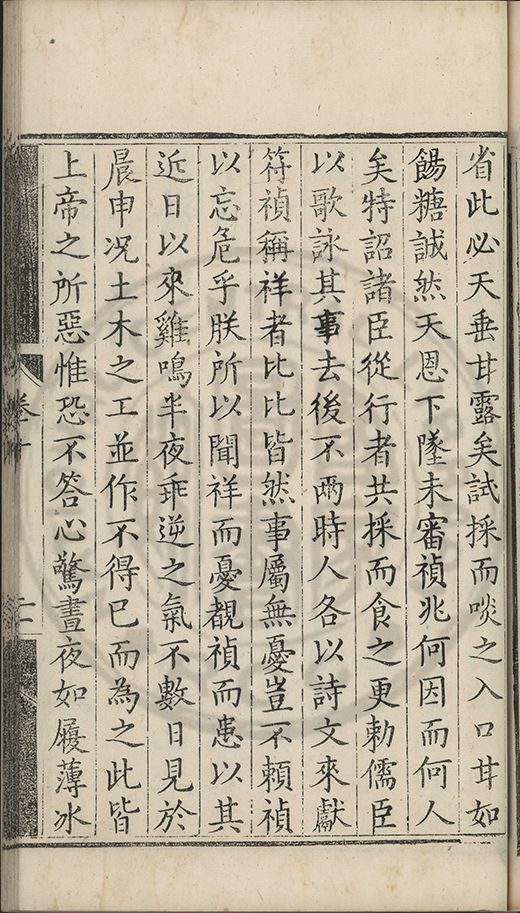 省此必天垂甘露矣試採而啖之入口甘如
餳糖誠然天恩下墜未審禎兆何因而何人
矣特詔諸臣從行者共採而食之更勅儒臣
以歌詠其事去後不兩時人各以詩文來獻
符禎稱祥者比比皆然事屬無憂豈不賴禎
以忘危乎朕所以聞祥而憂覩禎而患以其
近日以來雞鳴半夜乖逆之氣不數日見於
晨申况土木之工並作不得已而為之此皆
上帝之所惡惟恐不答心驚晝夜如履薄冰
卷十